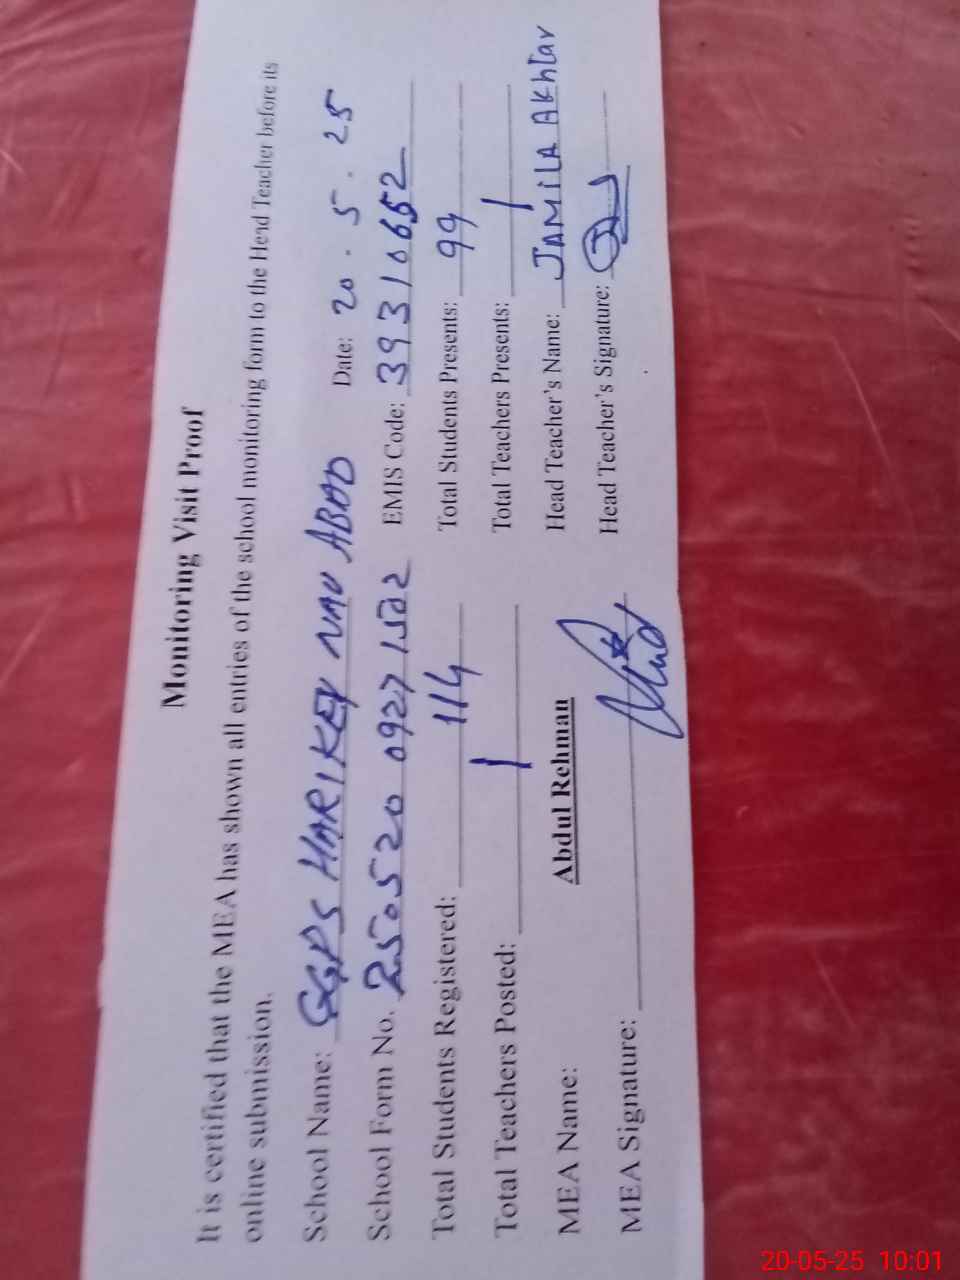 Monitoring Visit Proof
It is certified that the MEA has shown all entries of the school monitoring form to the Head Teacher before its
online submission.
School Name: GGPS HARIKEY NAU ABAD Date: 20 . 5 . 25
School Form No. 250520 0927 1522 EMIS Code: 39310652
Total Students Registered: 114 Total Students Presents: 99
Total Teachers Posted: 1 Total Teachers Presents: 1
MEA Name: Abdul Rehman Head Teacher's Name: JAMILA AKhtar
MEA Signature: Head Teacher's Signature:
20-05-25 10:01